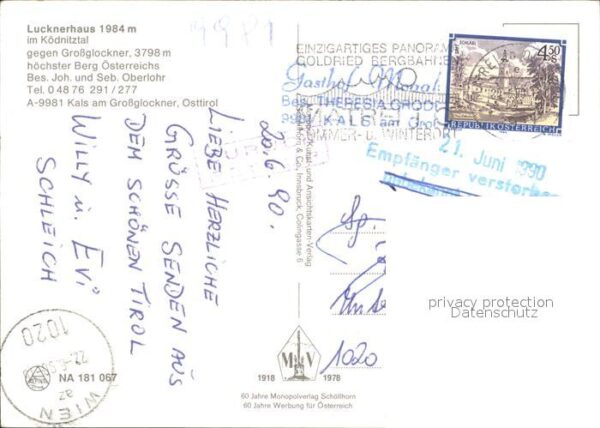 Lucknerhaus 1984 m
im Ködnitztal
gegen Großglockner, 3798 m
höchster Berg Österreichs
Bes. Joh. und Seb. Oberlohr
Tel. 0 48 76 291 / 277
A-9981 Kals am Großglockner, Osttirol
9981
20.6.90.
LIEBE HERZLICHE
GRÜSSE SENDEN AUS
DEM SCHÖNEN TIROL
WILLY u. EVI
SCHLEICH
EINZIGARTIGES PANORAM
GOLDRIED BERGBAHNE
Gasthof
Bes. THERESIA GRODER
KALS am Groß
SOMMER- U. WINTERORT
4.50
REPUBLIK ÖSTERREICH
21. Juni 1990
Empfänger verstorben
1020
privacy protection
Datenschutz
MV
1918 1978
60 Jahre Monopolverlag Schöllhorn
60 Jahre Werbung für Österreich
NA 181 067
1020
WIEN